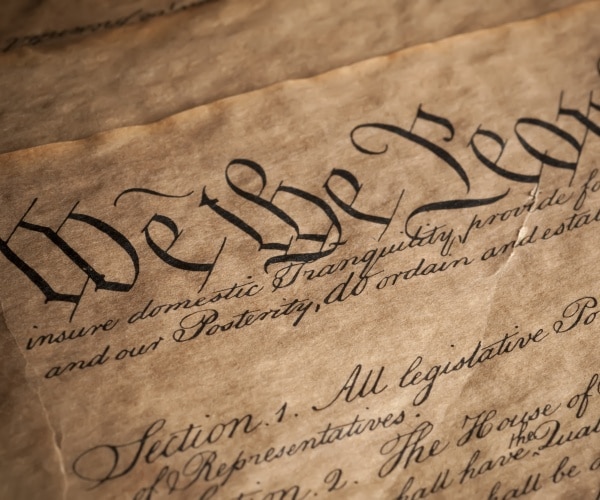 We the Peop
insure domestic Tranquility, provide fo
and our Posterity, do ordain and estab
Section. 1. All legislative Po
of Representatives.
2. The House of
the
hall have Qual
shall be a